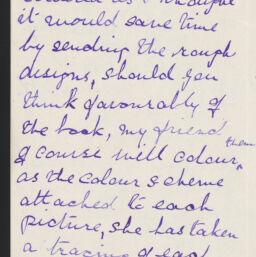 as I thought
it would save time
by sending the rough
designs, should you
think favourably of
the book, my friend
them
of course will colour
as the colour scheme
attached to each
picture, she has taken
a tracing of each